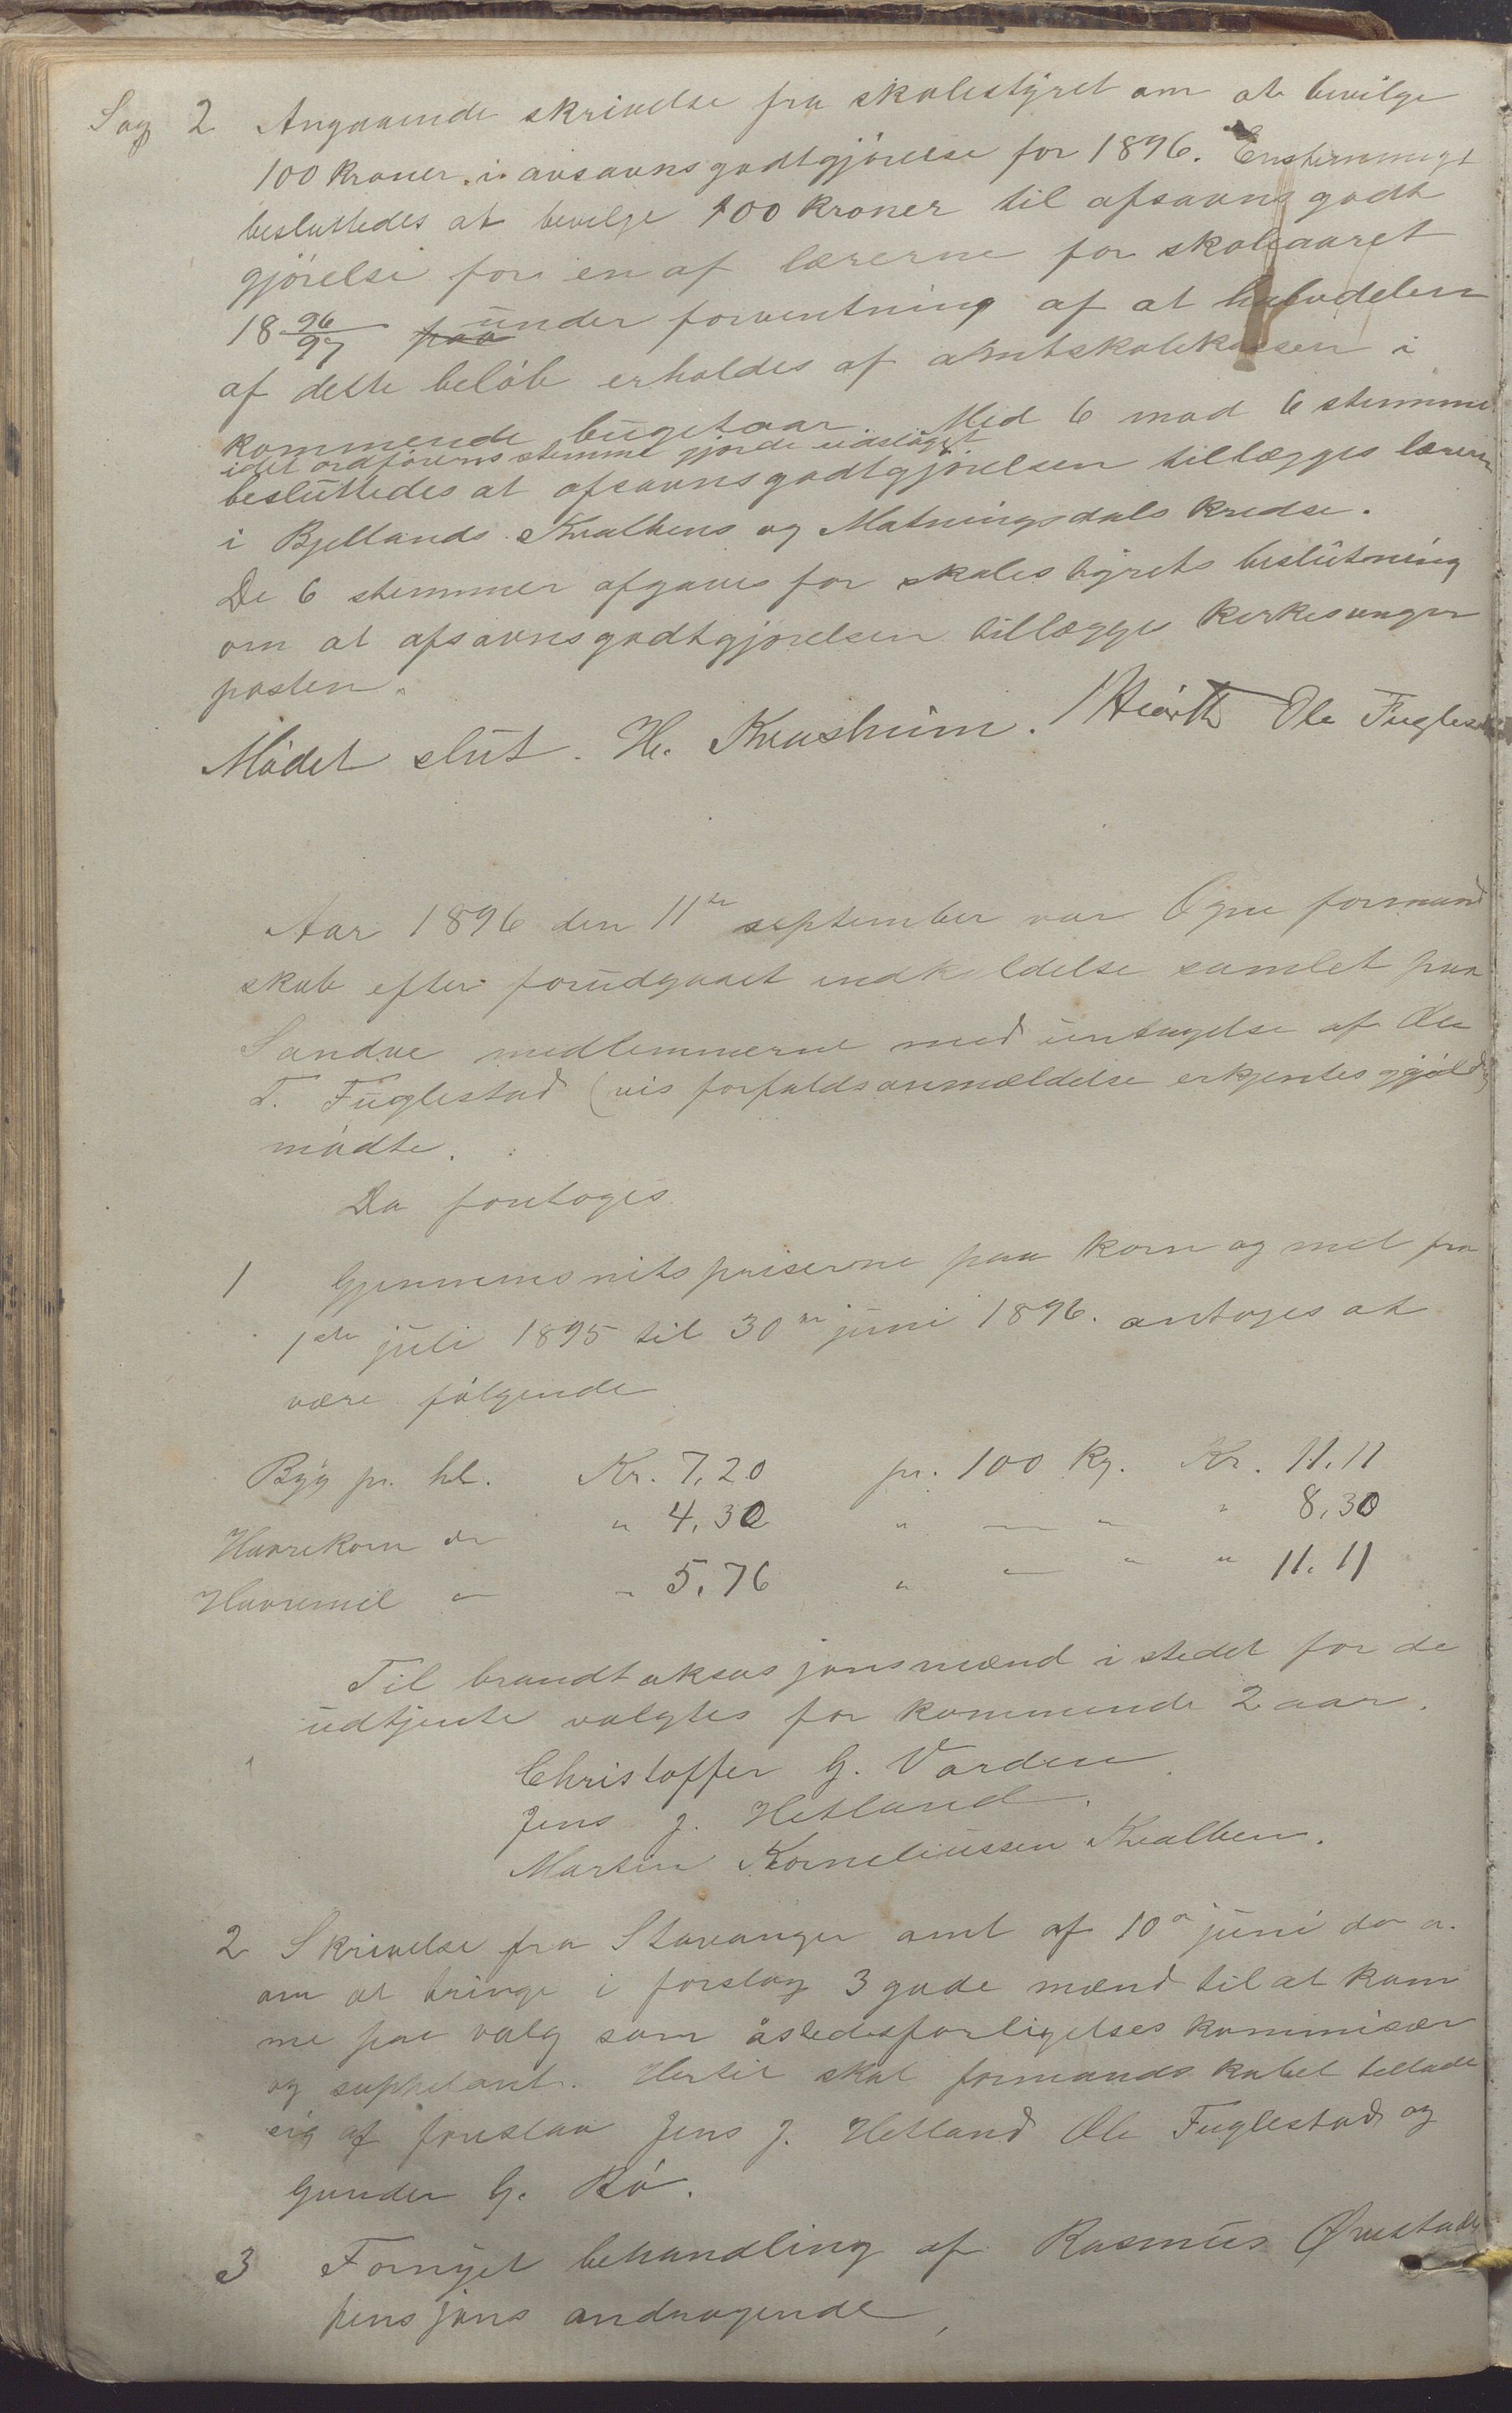 Sag 2 Angaaende skrivelse fra skolestyret om at bevilge
100 kroner i avsavnsgodtgjörelse for 1896. Enstemmigt
besluttedes at bevilge 100 kroner til afsavnsgodt
gjörelse for en af lærerne for skoleaaret
18 96/97 paa under forventning af at halvdelen
af dette belöb erholdes af amtskolekassen i
kommende bugetaar. Med 6 mod 6 stemmer
idet ordförerens stemme gjorde udslaget
besluttedes at afsavnsgodtgjörelsen tillægges læreren
i Bjellands Kvalbens og Matningsdals kredse.
De 6 stemmer afgaves for skolestyrets beslutning
om at afsavnsgodtgjörelsen tillægges kirkesanger
posten.
Mödet slut. H. Kvashiim. Hiorth Ole Fuglestad
Aar 1896 den 11te september var Ogne formand
skab efter forudgaaet indkaldelse samlet paa
Sandve medlemmerne med untagelse af Ole
T. Fuglestad (vis forfaldsanmældelse erkjentes gjyldig)
mödte.
Da foretoges
1 Gjennemsnitspriserne paa korn og mel fra
1ste juli 1895 til 30te juni 1896. antoges at
være fölgende
Byg pr. hl. Kr. 7,20 pr. 100 kg. Kr. 11.11
Havrekorn do " 4,30 " — " " 8,30
Havremel " " 5,76 " — " " 11.11
Til brandtaksasjonsmænd i stedet for de
udtjente valgtes for kommende 2 aar.
Christoffer G. Varden
Jens J. Hetland.
Martin Korneliussen Kvalben.
2 Skrivelse fra Stavanger amt af 10de juni d. a.
om at bringe i forslag 3 gode mænd til at kom
me paa valg som åstedsforligelseskommisær
og supleant. Hertil skal formandskabet tillade
sig af foreslaa Jens J. Hetland Ole Fuglestad og
Gunder G. Bö.
3 Fornyet behandling af Rasmus Ørestads
pensjons andragende,